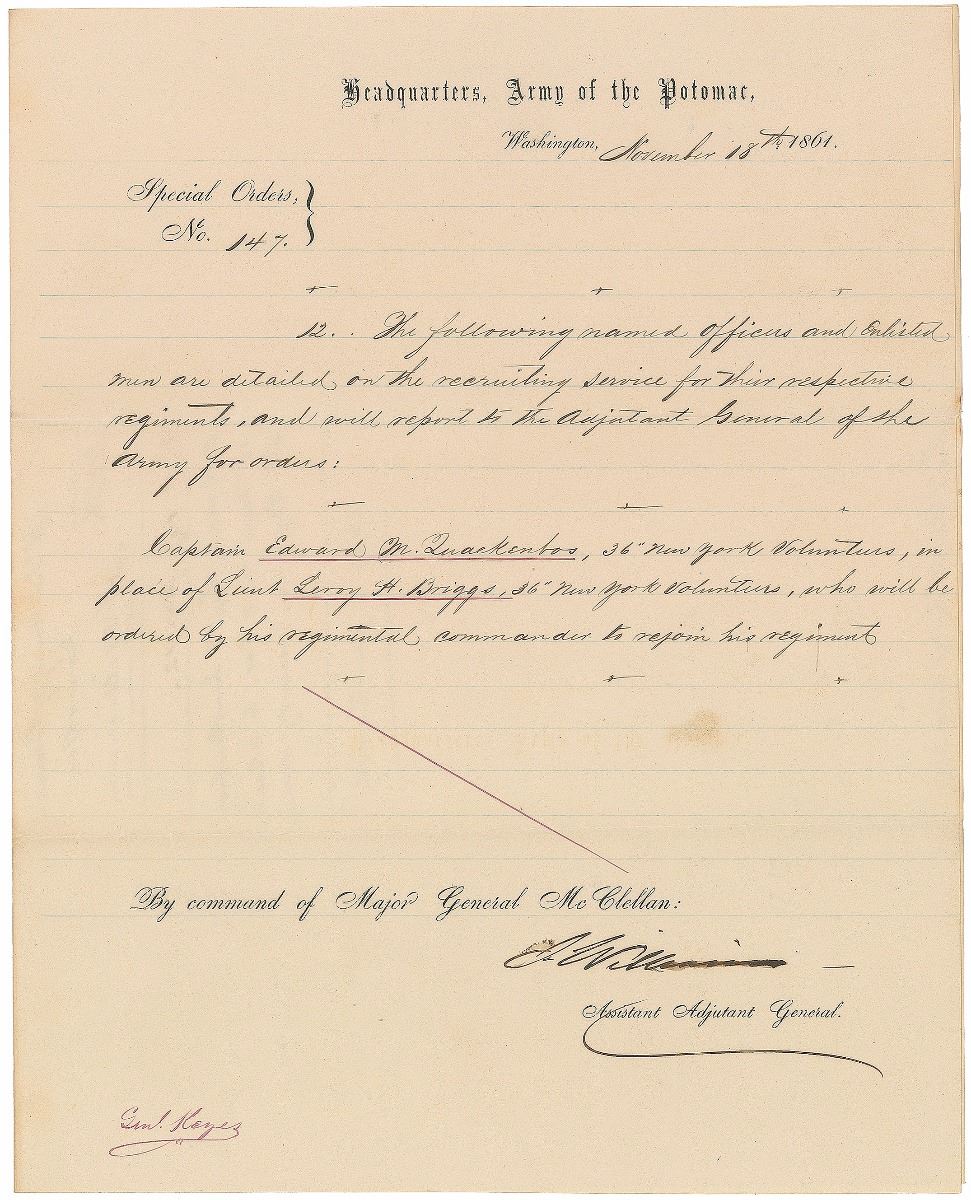 Headquarters, Army of the Potomac,
Washington, November 18th 1861.
Special Orders,
No. 147.
12. . The following named Officers and Enlisted
men are detailed on the recruiting service for their respective
regiments, and will report to the Adjutant General of the
Army for orders:
Captain Edward M. Quackenbos, 36" New York Volunteers, in
place of Lieut Leroy H. Briggs, 36" New York Volunteers, who will be
ordered by his regimental commander to rejoin his regiment
By command of Major General McClellan:
Assistant Adjutant General.
Genl. Keyes